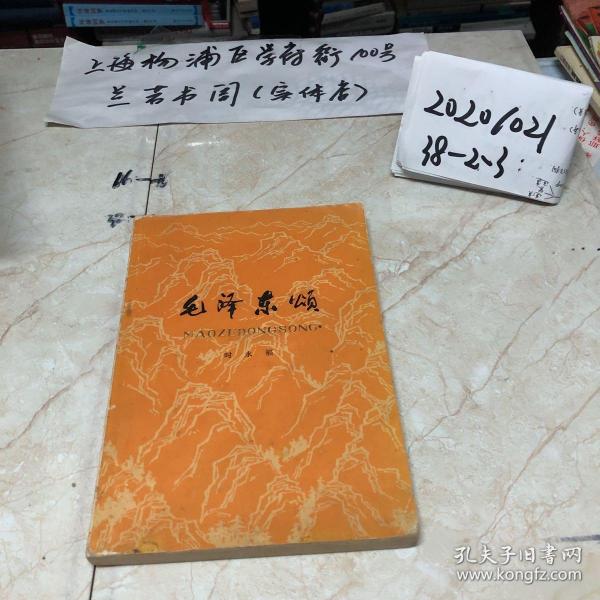 上海杨浦区学府街100号
兰花书阁(实体店)
20201021
38-2-3:
16-
毛泽东颂
MAOZEDONGSONG
时永福
孔夫子旧书网
www.kongfz.com